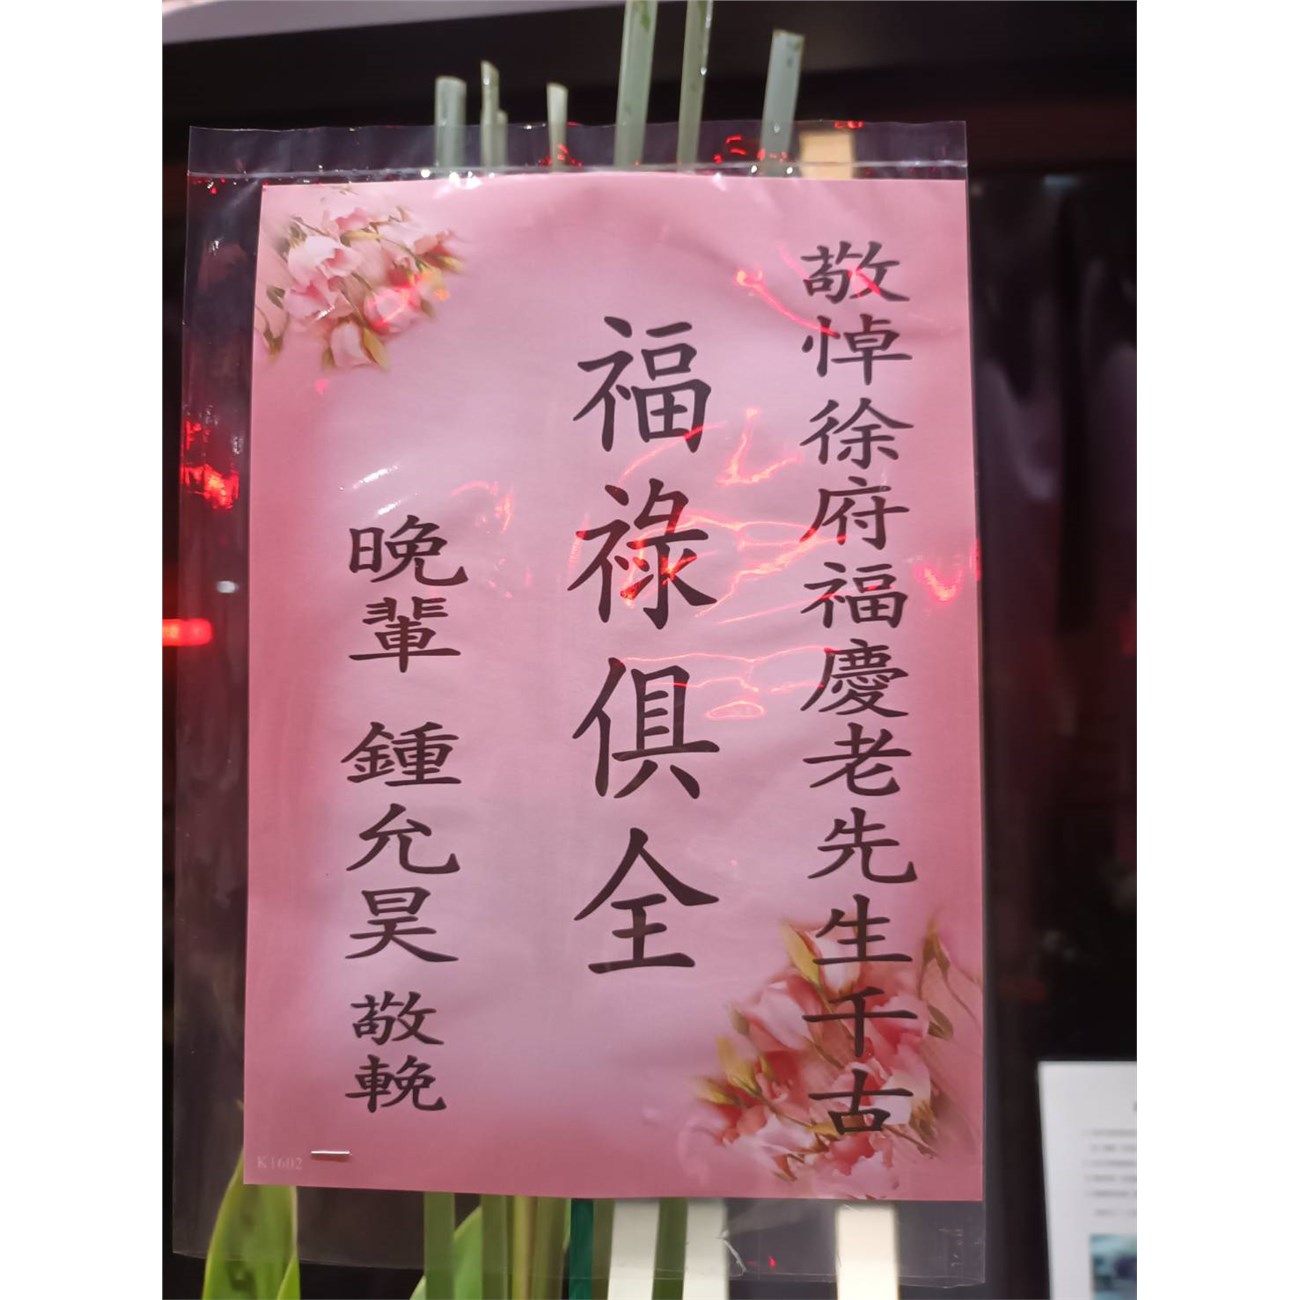 敬悼徐府福慶老先生千古
福祿俱全
晚輩 鍾允昊 敬輓
K1602